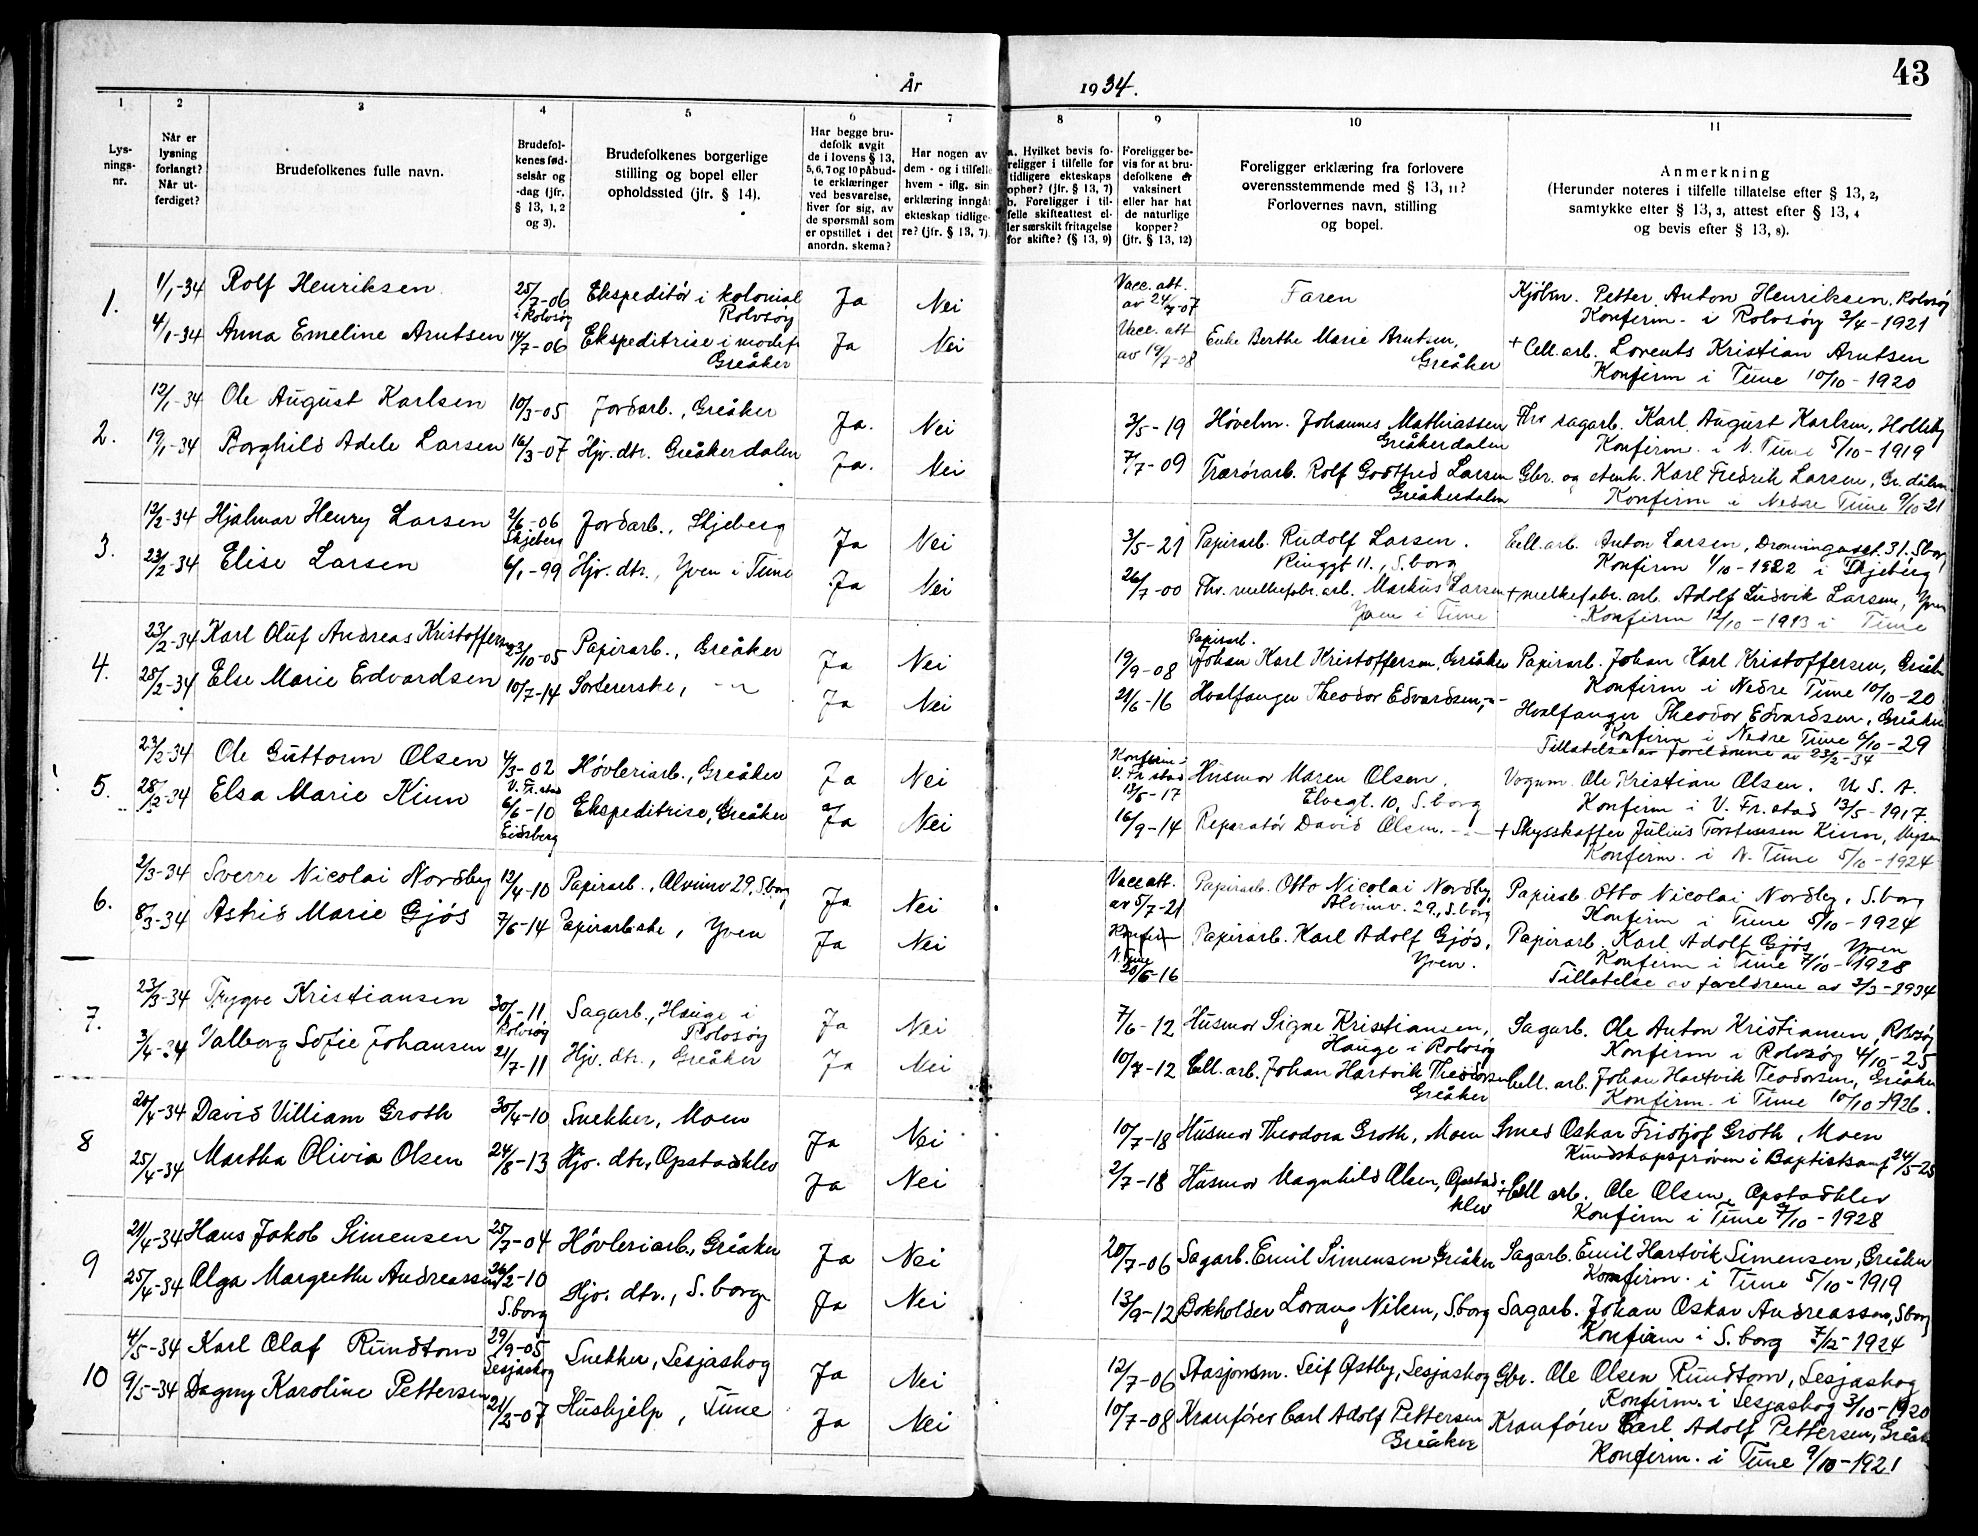 43
År 1934.
1
2
3
4
5
6
7
8
9
10
11
Lys-
nings-
nr.
Når er
lysning
forlangt?
Når ut-
ferdiget?
Brudefolkenes fulle navn.
Brudefol-
kenes fød-
selsår og
-dag (jfr.
§ 13, 1, 2
og 3).
Brudefolkenes borgerlige
stilling og bopel eller
opholdssted (jfr. § 14).
Har begge bru-
defolk avgit
de i lovens § 13,
5, 6, 7 og 10 påbud-
te erklæringer
ved besvarelse,
hver for sig, av
de spørsmål som
er opstillet i det
anordn. skema?
Har nogen av
dem - og i tilfelle
hvem - iflg. sin
erklæring inngåt
ekteskap tidlige-
re? (jfr. § 13, 7).
a. Hvilket bevis fo-
religger i tilfelle for
tidligere ekteskaps
ophør? (jfr. § 13, 7)
b. Foreligger i til-
felle skifteattest el-
ler særskilt fritagelse
for skifte? (§ 13, 9)
Foreligger be-
vis for at bru-
defolkene er
vaksinert
eller har hat
de naturlige
kopper?
(jfr. § 13, 12)
Foreligger erklæring fra forlovere
overensstemmende med § 13, 11?
Forlovernes navn, stilling
og bopel.
Anmerkning
(Herunder noteres i tilfelle tillatelse efter § 13, 2,
samtykke efter § 13, 3, attest efter § 13, 4
og bevis efter § 13, 8).
1.
1/1-34 Rolf Henriksen 25/7-06 i Rolvsøy Ekspeditør i kolonial Rolvsøy Ja Nei
Vacc. att. av 24/7-07 Faren Kjøbm. Petter Anton Henriksen, Rolvsøy
Konfirm. i Rolvsøy 3/4-1921
4/1-34 Anna Emeline Arntsen 14/7-06 Ekspeditrise i Greåker Ja Nei
Vacc. att av 19/7-08 Enke Berthe Marie Arntsen, Greåker + Cell. arb. Lorents Kristian Arntsen
Konfirm i Tune 10/10-1920
2.
12/1-34 Ole August Karlsen 10/3-05 Jordarb., Greåker Ja. Nei
3/5-19 Høvelm. Johannes Mathiassen Greåkerdalen Fhv sagarb. Karl August Karlsen, Holleby
Konfirm. i N. Tune 5/10-1919
19/1-34 Borghild Adele Larsen 16/3-07 Hjv. dtr. Greåkerdalen Ja. Nei
7/7-09 Trærørarb. Rolf Godtfred Larsen Greåkerdalen Gbr. og Karl Fredrik Larsen, Gr. dalen
Konfirm i Nedre Tune 9/10-21
3.
12/2-34 Hjalmar Henry Larsen 2/6-06 Skjeberg Jordarb., Skjeberg Ja Nei
3/5-21 Papirarb. Rudolf Larsen. Ringgt 11., S.borg Cell. arb. Anton Larsen, Dronningensgt. 31. Sborg
Konfirm 1/10-1922 i Skjeberg
23/2-34 Elise Larsen 6/1-99 Hjv. dtr., Yven i Tune Ja Nei
26/7-00 Fhv. melkefabr. arb. Markus Larsen Yven i Tune + melkefabr. arb. Adolf Ludvik Larsen, Yven
Konfirm 12/10-1913 i Tune
4.
23/2-34 Karl Oluf Andreas Kristoffersen 23/10-05 Papirarb., Greåker Ja Nei
19/9-08 Papirarb. Johan Karl Kristoffersen, Greåker Papirarb. Johan Karl Kristoffersen, Greåk
Konfirm i Nedre Tune 10/10-20
28/2-34 Else Marie Edvardsen 10/7-14 Sortererske, -"- Ja Nei
21/6-16 Hvalfanger Theodor Edvardsen, -"- Hvalfanger Theodor Edvardsen, Greåker
Konfirm i Nedre Tune 6/10-29
Tillatelse av foreldrene av 23/2-34
5.
23/2-34 Ole Guttorm Olsen 4/3-02 V. Fr.stad Høvleriarb., Greåker Ja Nei
Konfirm. V. Fr.stad 13/5-17 Husmor Maren Olsen. Elvegt. 10, S.borg Vognm. Ole Kristian Olsen. U. S. A.
Konfirm i V. Fr.stad 13/5-1917.
28/2-34 Elsa Marie Kinn 6/6-10 Eidsberg Ekspeditrise, Greåker Ja Nei
16/9-14 Reparatør David Olsen. -"- + Skysskaffer Julius Torstensen Kinn, Mysen
Konfirm. i N. Tune 5/10-1924
6.
2/3-34 Sverre Nicolai Nordby 12/4-10 Papirarb., Alvimv 29, S.borg Ja Nei
Vacc att. av 5/7-21 Papirarb. Otto Nicolai Nordby, Alvimv. 29., S.borg Papirarb. Otto Nicolai Nordby, S.borg
Konfirm i Tune 5/10-1924
8/3-34 Astrid Marie Gjøs 7/6-14 Papirarbske, Yven Ja Nei
Konfirm N. Tune 20/6-16 Papirarb. Karl Adolf Gjøs, Yven. Papirarb. Karl Adolf Gjøs Yven
Konfirm i Tune 7/10-1928
Tillatelse av foreldrene av 2/3-1934
7.
23/3-34 Trygve Kristiansen 30/1-11 Rolvsøy Sagarb., Hauge i Rolvsøy Ja Nei
7/6-12 Husmor Signe Kristiansen, Hauge i Rolvsøy Sagarb. Ole Anton Kristiansen, Rolvsøy
Konfirm i Rolvsøy 4/10-25
3/4-34 Valborg Sofie Johansen 21/7-11 Hjv. dtr., Greåker Ja Nei
10/7-12 Cell. arb. Johan Hartvik Theodorsen Greåker Cell. arb. Johan Hartvik Teodorsen, Greåker
Konfirm. i Tune 10/10-1926.
8
20/4-34 David Villiam Groth 30/4-10 Snekker, Moen Ja Nei
10/7-18 Husmor Theodora Groth, Moen Smed Oskar Fridtjof Groth, Moen
Kundskapsprøven i Baptistsamf 24/5-25
25/4-34 Martha Olivia Olsen 24/8-13 Hjv. dtr, Opstadklev Ja Nei
2/7-18 Husmor Magnhild Olsen, Opstad-klev + Cell arb. Ole Olsen, Opstadklev
Konfirm i Tune 7/10-1928
9
21/4-34 Hans Jakob Simensen 25/7-04 Høvleriarb., Greåker Ja Nei
20/7-06 Sagarb. Emil Simensen Greåker Sagarb. Emil Hartvik Simensen, Greåker
Konfirm. i Tune 5/10-1919
25/4-34 Olga Margrethe Andreassen 26/2-10 S.borg Hjv. dtr., S.borg Ja Nei
13/9-12 Bokholder Lorang Nilsen, Sborg Sagarb. Johan Oskar Andreassen, Sborg
Konfirm i S.borg 7/12-1924
10
4/5-34 Karl Olaf Rundtom 29/9-05 Lesjaskog Snekker, Lesjaskog Ja Nei
12/7-06 Stasjonsm. Leif Østby, Lesjaskog Gbr. Ole Olsen Rundtom, Lesjaskog
Konfirm. i Lesjaskog 3/10-1920
9/5-34 Dagny Karoline Pettersen 21/2-07 Hushjelp, Tune Ja Nei
10/7-08 Kranfører Carl Adolf Pettersen Greåker Kranfører Carl Adolf Pettersen, Greåk
Konfirm. i Tune 9/10-1921